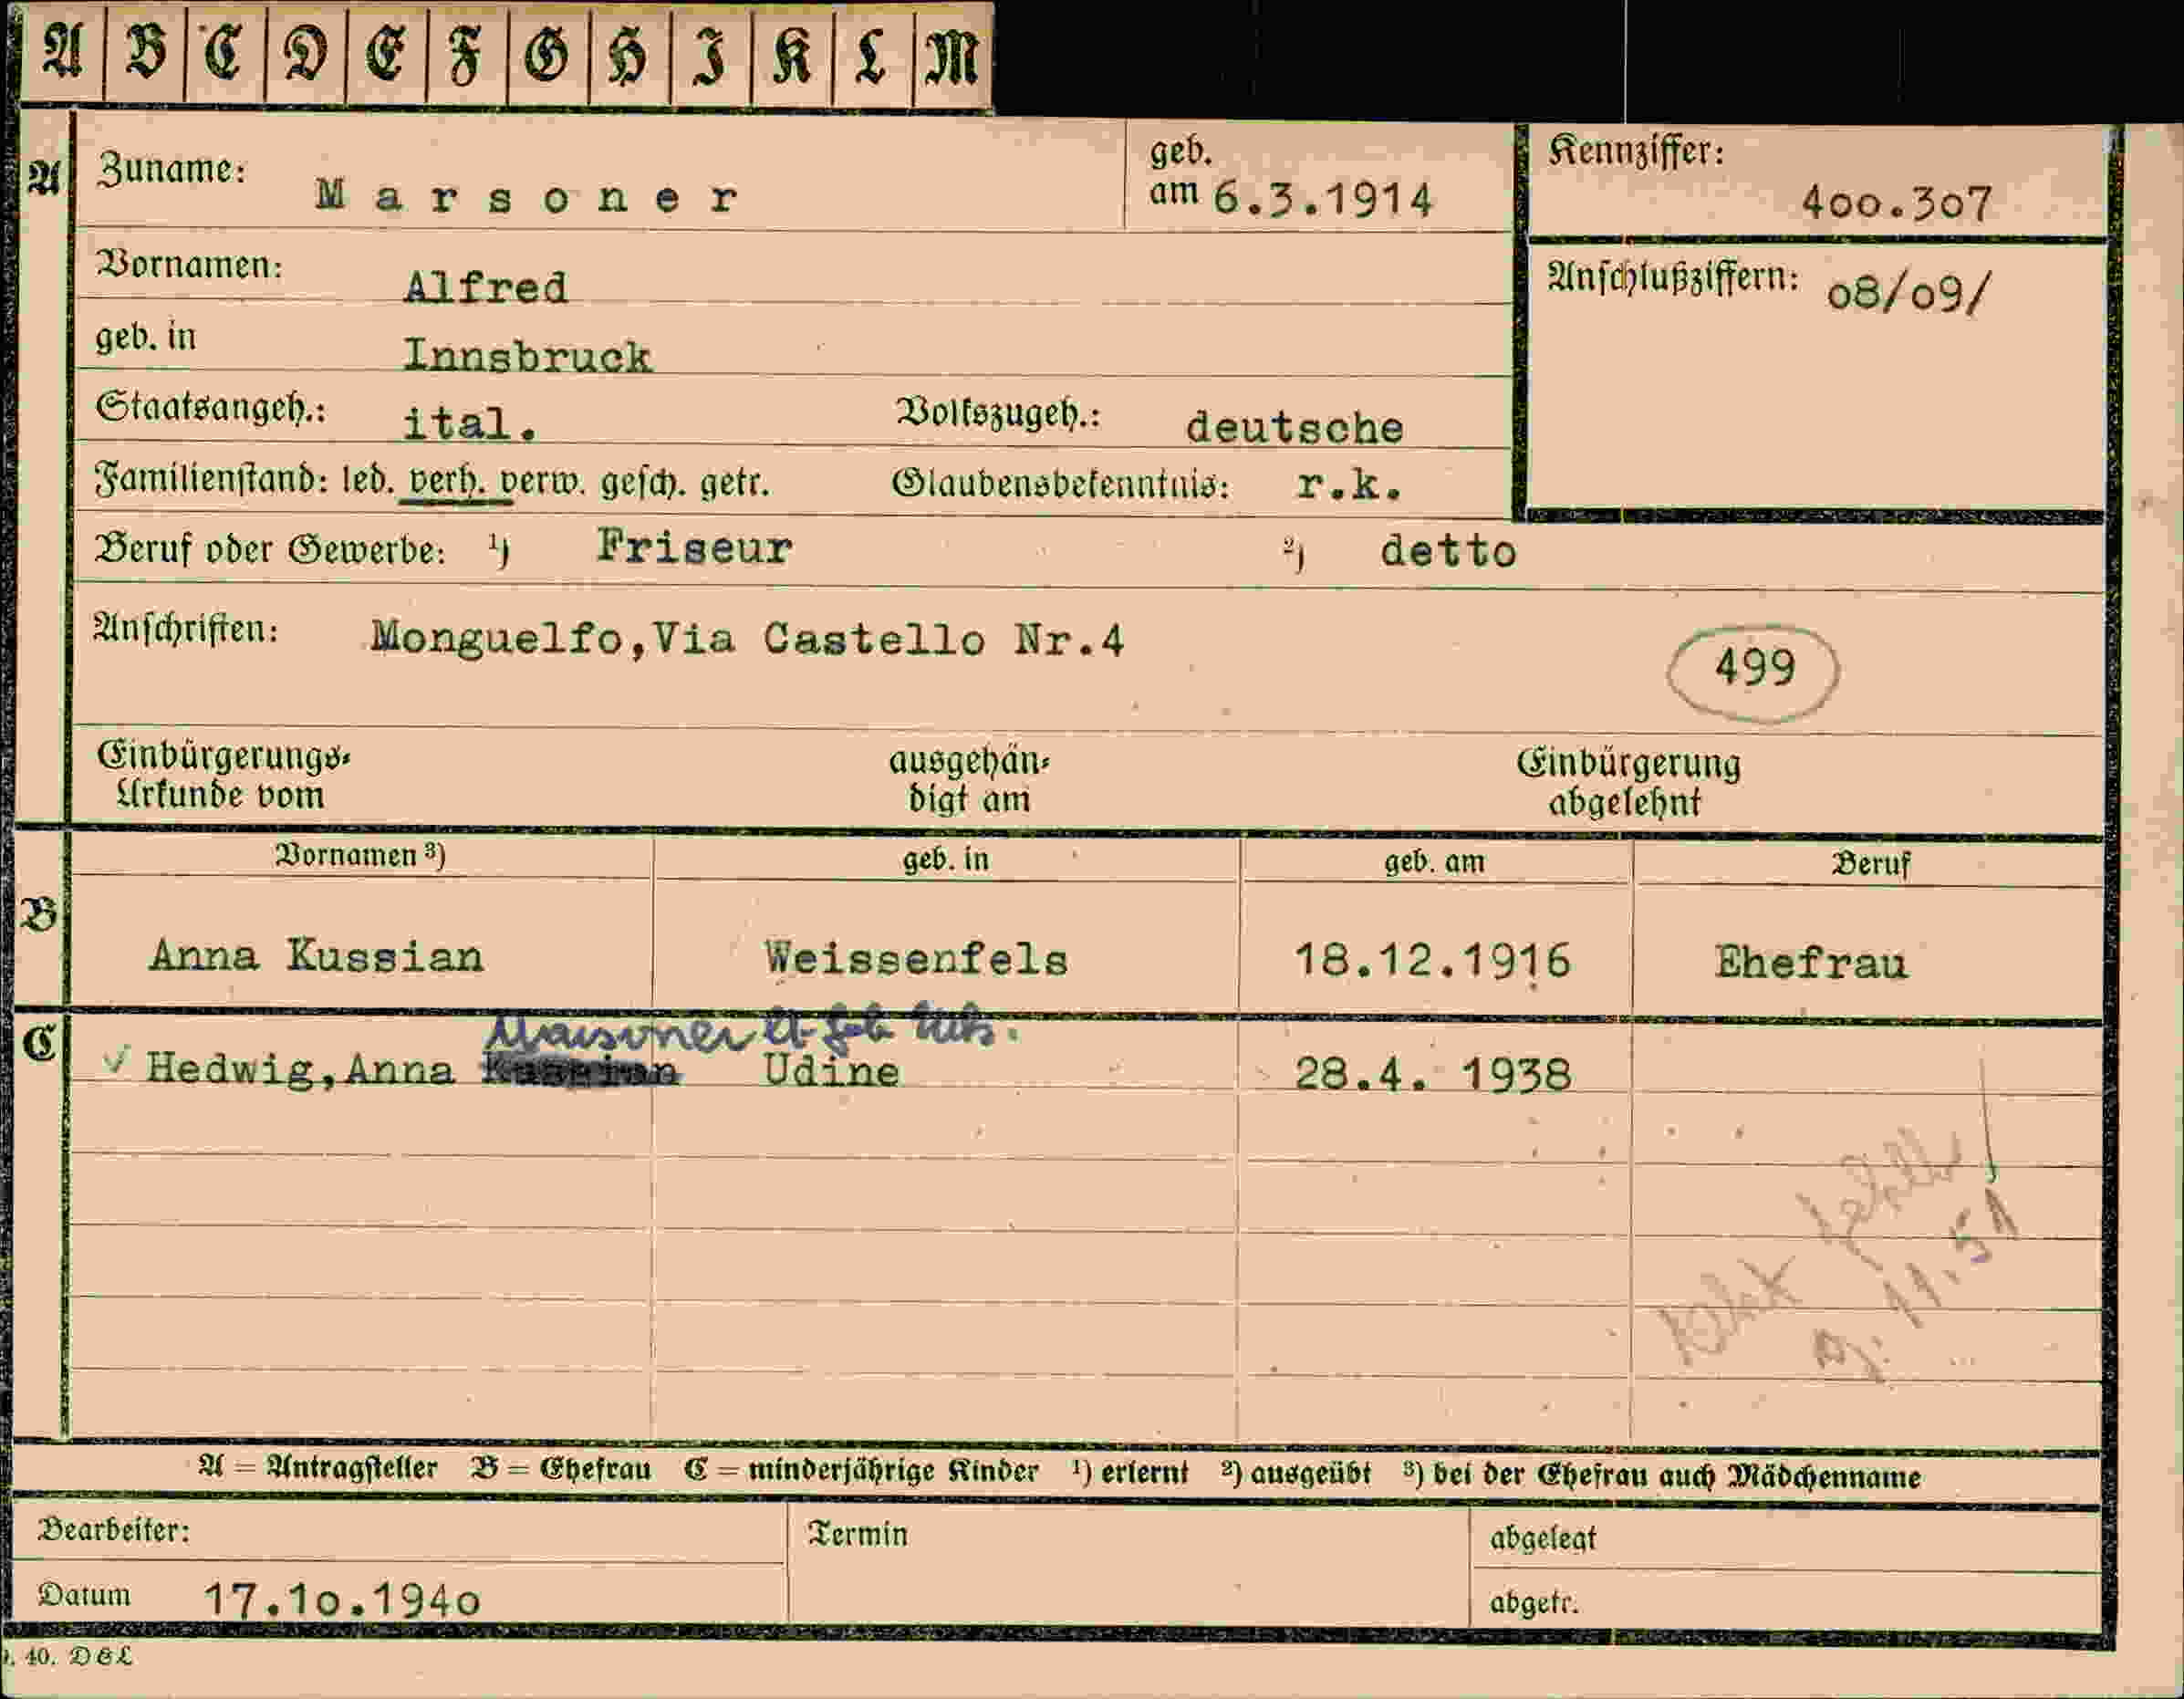 A B C D E F G H I K L M
A
Zuname: Marsoner
geb. am 6.3.1914
Kennziffer: 400.307
Vornamen: Alfred
Anschlußziffern: 08/09/
geb. in Innsbruck
Staatsangeh.: ital. Volkszugeh.: deutsche
Familienstand: led. verh. verw. gesch. getr. Glaubensbekenntnis: r.k.
Beruf oder Gewerbe: ¹) Friseur ²) detto
Anschriften: Monguelfo,Via Castello Nr.4
499
Einbürgerungs-
Urkunde vom
ausgehän-
digt am
Einbürgerung
abgelehnt
Vornamen ³) geb. in geb. am Beruf
B
Anna Kussian Weissenfels 18.12.1916 Ehefrau
C
Marsoner lt.
Hedwig,Anna Kussian Udine 28.4. 1938
Akt fehlt
11.51
A = Antragsteller B = Ehefrau C = minderjährige Kinder ¹) erlernt ²) ausgeübt ³) bei der Ehefrau auch Mädchenname
Bearbeiter: Termin abgelegt
Datum 17.10.1940 abgetr.
40. D&L